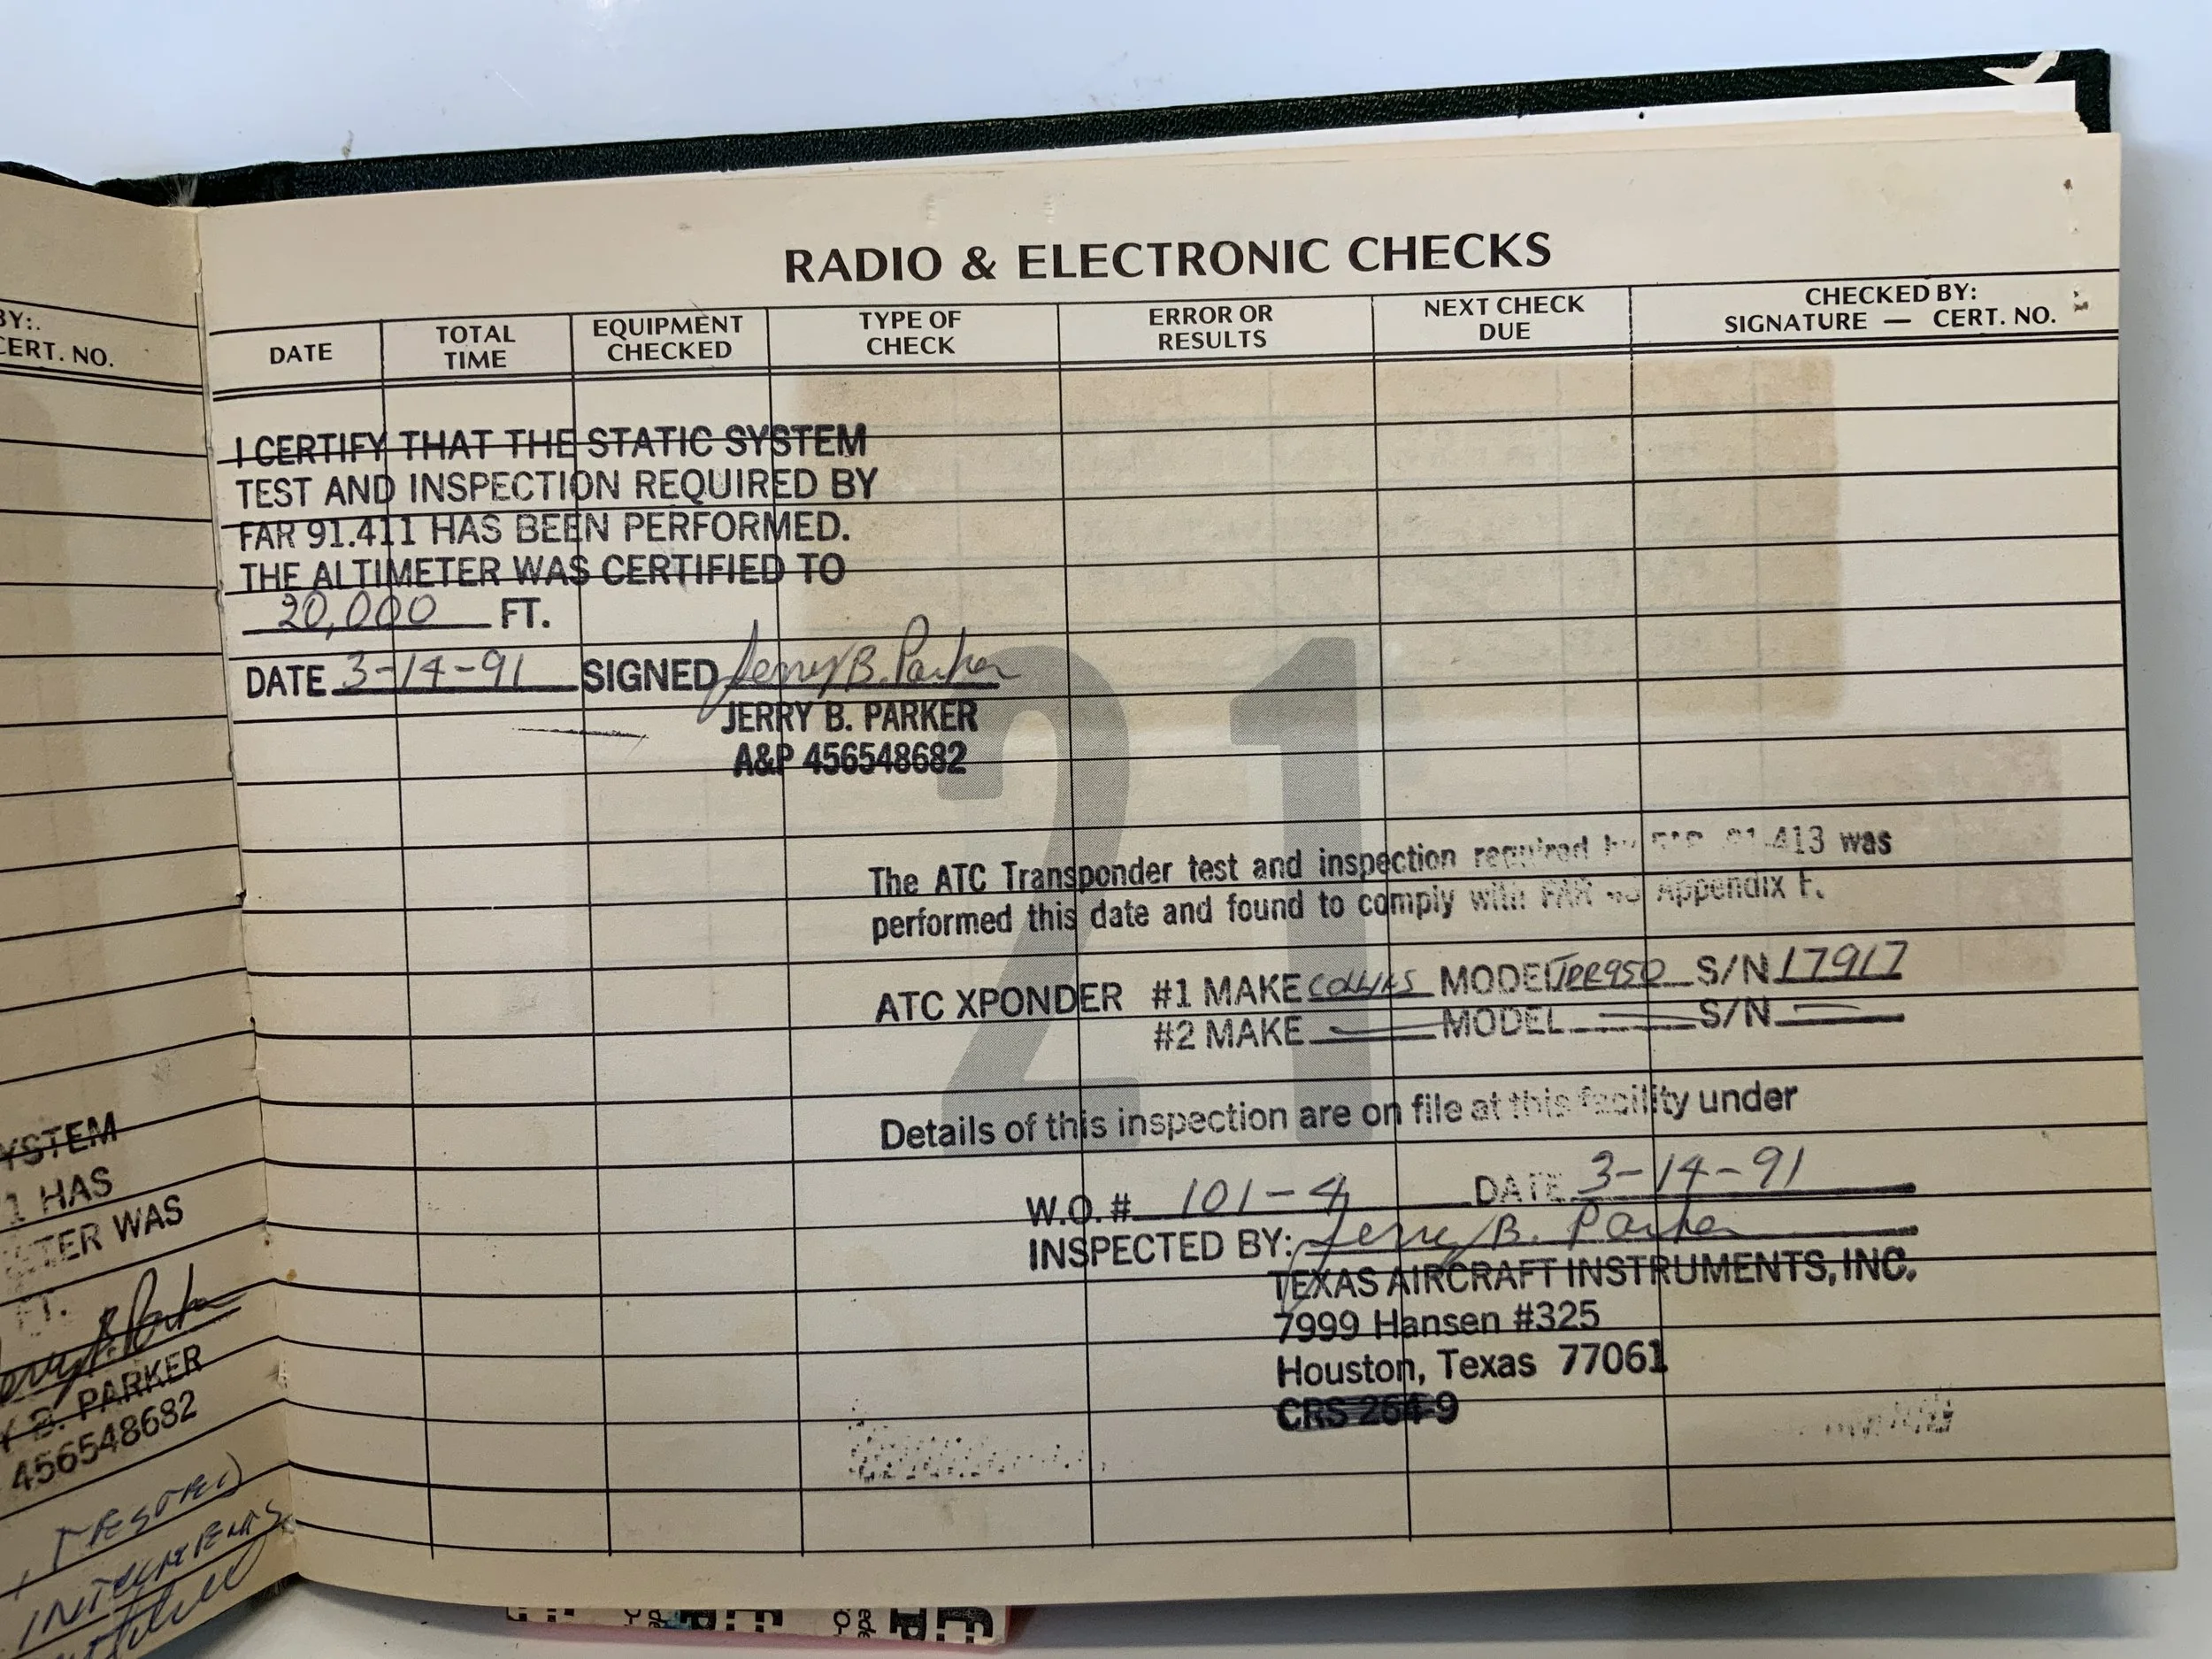 BY:.
CERT. NO.
YSTEM
1 HAS
TER WAS
FT.
B. PARKER
456548682
RADIO & ELECTRONIC CHECKS
DATE
TOTAL TIME
EQUIPMENT CHECKED
TYPE OF CHECK
ERROR OR RESULTS
NEXT CHECK DUE
CHECKED BY:
SIGNATURE — CERT. NO.
I CERTIFY THAT THE STATIC SYSTEM
TEST AND INSPECTION REQUIRED BY
FAR 91.411 HAS BEEN PERFORMED.
THE ALTIMETER WAS CERTIFIED TO
20,000 FT.
DATE 3-14-91 SIGNED Jerry B. Parker
JERRY B. PARKER
A&P 456548682
21
The ATC Transponder test and inspection required by FAR 91.413 was
performed this date and found to comply with FAR 43 Appendix F.
ATC XPONDER #1 MAKE COLLINS MODEL TDR950 S/N 17917
#2 MAKE MODEL S/N
Details of this inspection are on file at this facility under
W.O. # 101-4 DATE 3-14-91
INSPECTED BY: Jerry B. Parker
TEXAS AIRCRAFT INSTRUMENTS, INC.
7999 Hansen #325
Houston, Texas 77061
CRS 264-9